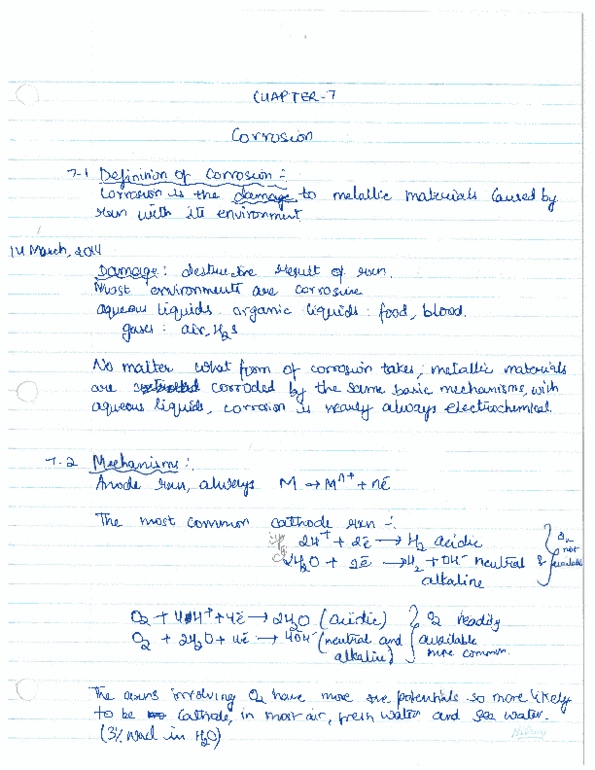 CHAPTER-7
Corrosion
7.1 Definition of Corrosion :-
Corrosion is the damage to metallic materials caused by
rxn with its environment
14 March, 2014
Damage : destructive result of rxn.
Most environments are corrosive
aqueous liquids organic liquids : food, blood.
gases : air, H₂S
No matter what form of corrosion takes, metallic materials
are corroded by the same basic mechanisms, with
aqueous liquids, corrosion is nearly always electrochemical.
7.2 Mechanisms :-
Anode rxn, always M → Mⁿ⁺ + nē
The most common cathode rxn :-
2H⁺ + 2ē → H₂ acidic
2H₂O + 2ē → H₂ + OH⁻ neutral &
alkaline
O₂ not available
O₂ + 4H⁺ + 4ē → 2H₂O (acidic)
O₂ + 2H₂O + 4ē → 4OH⁻ (neutral and
alkaline)
O₂ readily
available
more common.
The rxns involving O₂ have more +ve potentials so more likely
to be cathode, in most air, fresh water and sea water.
(3% NaCl in H₂O)